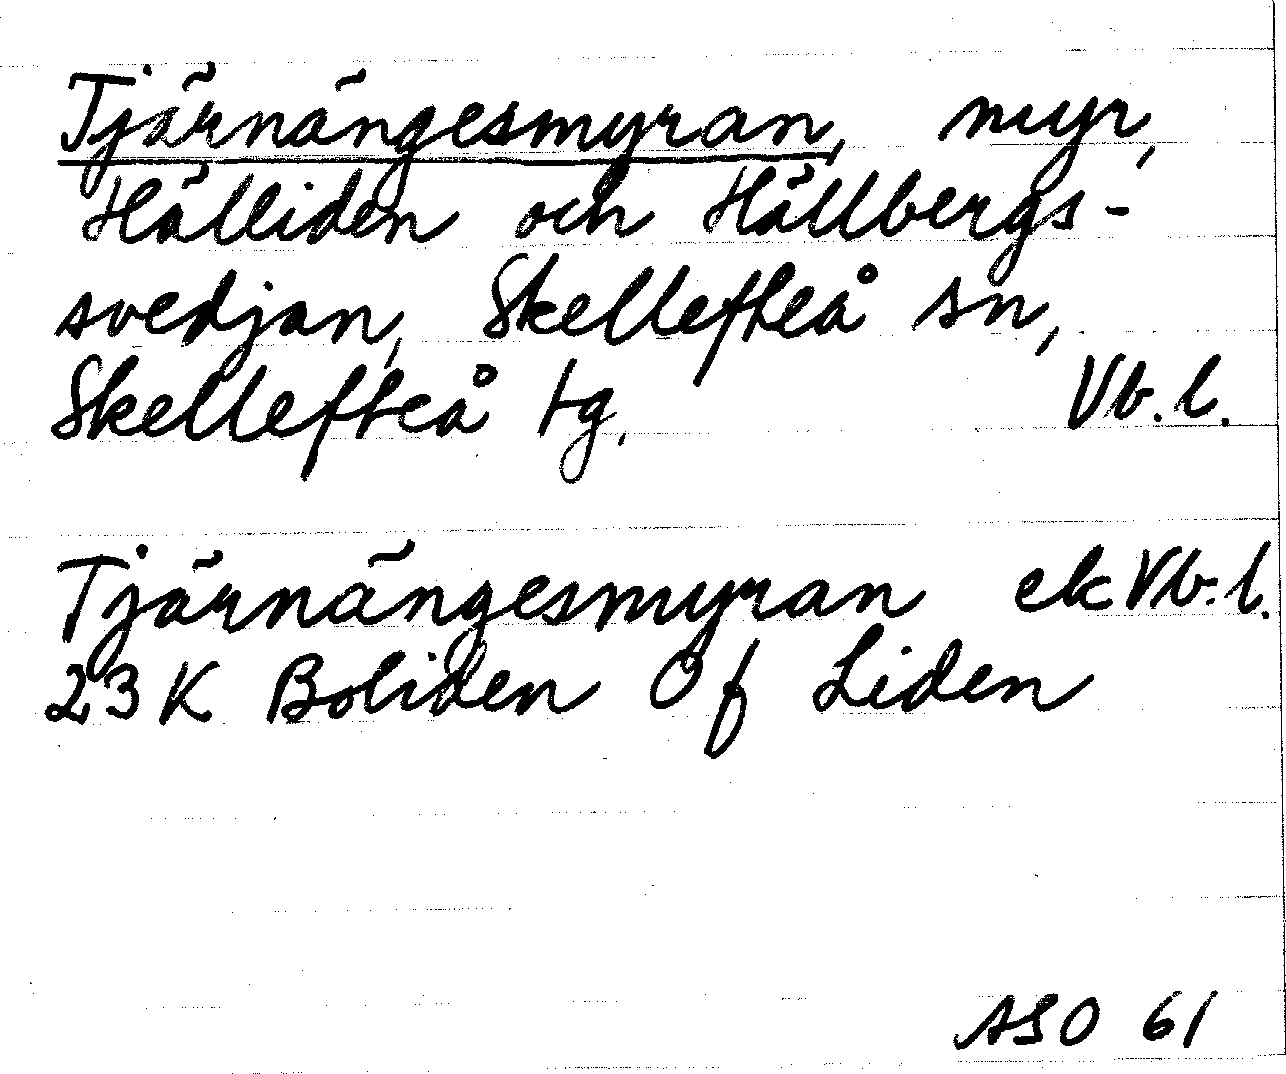 Tjärnängesmyran, myr,
Hälliden och Hällbergs-
svedjan, Skellefteå sn,
Skellefteå tg. Vb.l.
Tjärnängesmyran ek Vb.l.
23 K Boliden Of Liden
ASO 61